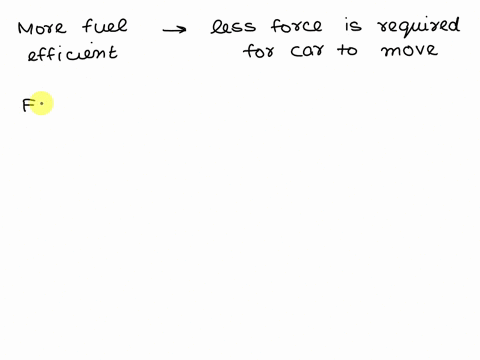 More fuel → less force is required
efficient for car to move
F